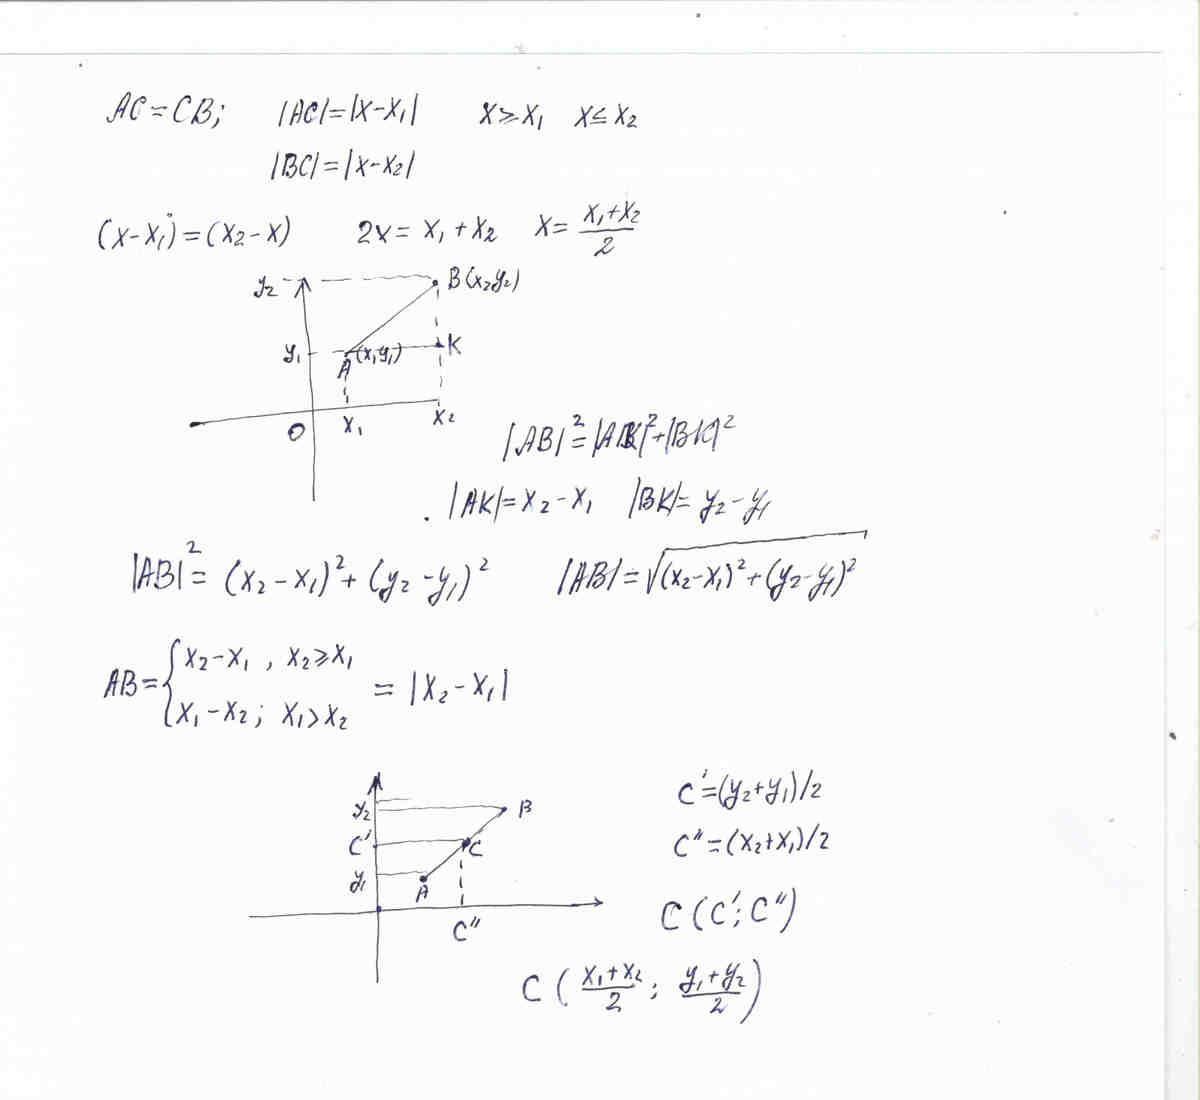 AC=CB; |AC|=|x-x₁| x≥x₁ x≤x₂
|BC|=|x-x₂|
(x-x₁)=(x₂-x) 2x=x₁+x₂ x=(x₁+x₂)/2
y₂ B(x₂y₂)
y₁ A(x₁y₁) K
O x₁ x₂
|AB|²=|AK|²+|BK|²
|AK|=x₂-x₁ |BK|=y₂-y₁
|AB|²=(x₂-x₁)²+(y₂-y₁)² |AB|=√((x₂-x₁)²+(y₂-y₁)²)
AB={x₂-x₁, x₂≥x₁
x₁-x₂; x₁>x₂ =|x₂-x₁|
y₂ B
C' C
y₁ A
C''
C'=(y₂+y₁)/2
C''=(x₂+x₁)/2
C(C';C'')
C((x₁+x₂)/2; (y₁+y₂)/2)